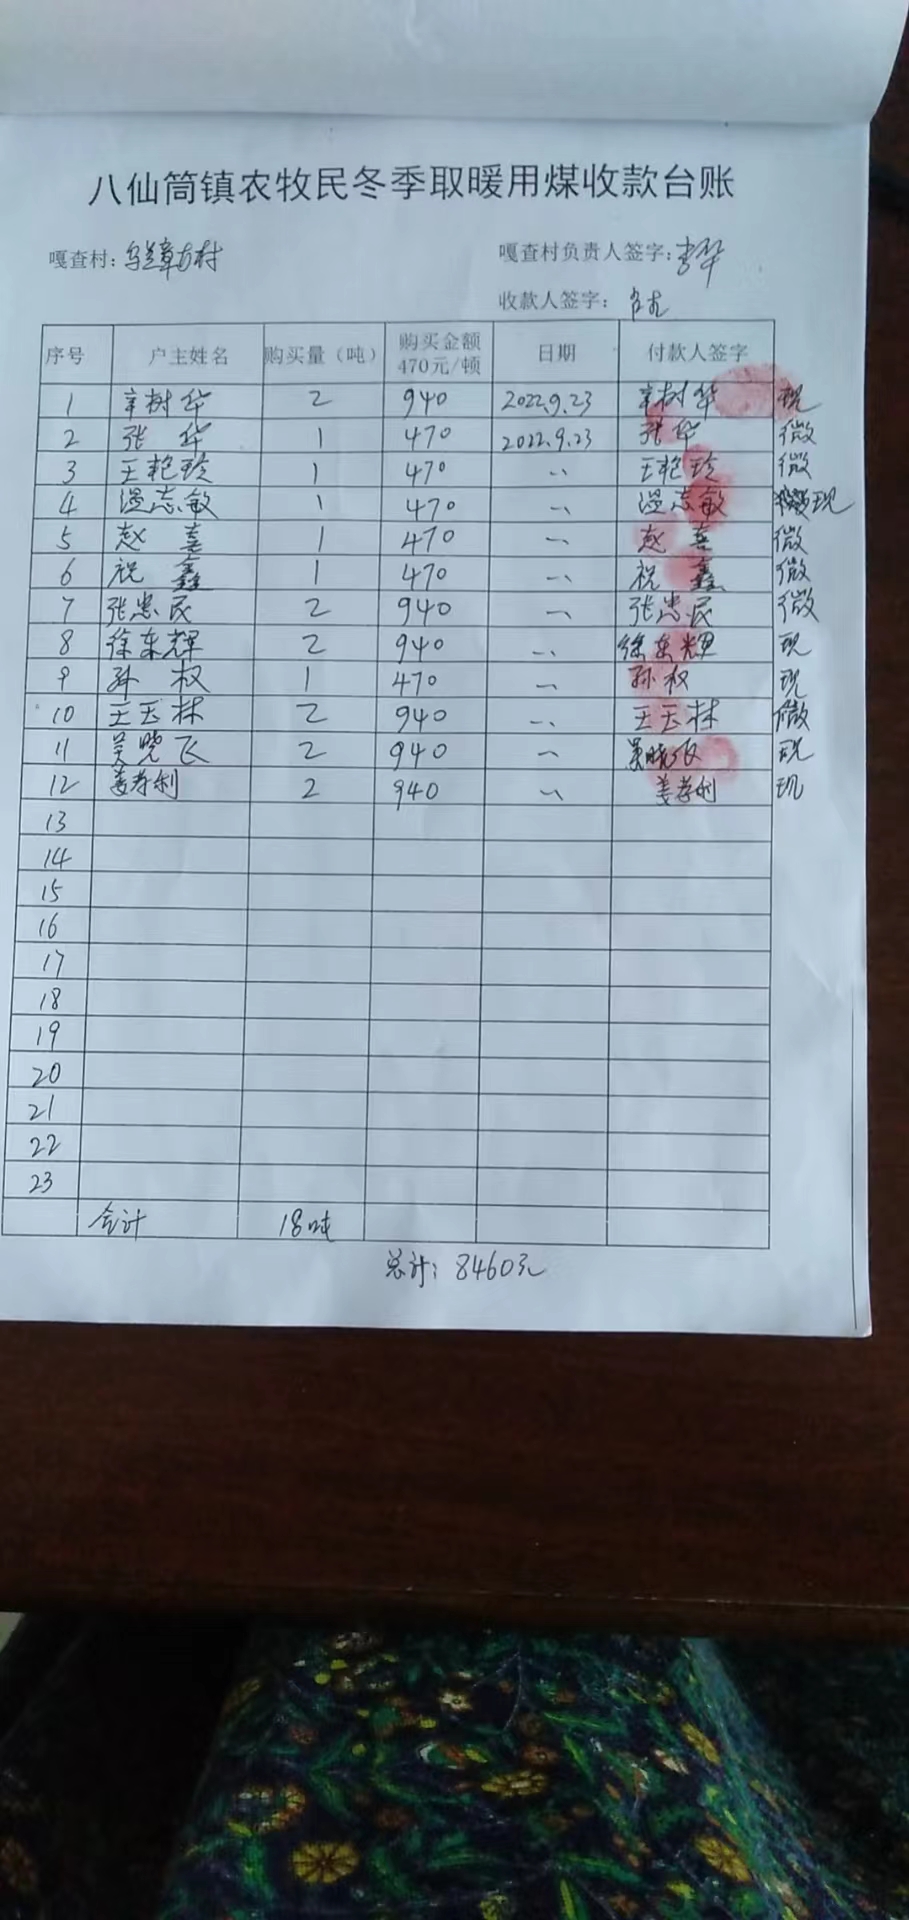 八仙筒镇农牧民冬季取暖用煤收款台账
嘎查村：乌兰章古村 嘎查村负责人签字：李华
收款人签字：
序号 户主姓名 购买量（吨） 购买金额 470元/顿 日期 付款人签字
1 辛树华 2 940 2022.9.23 辛树华 现
2 张华 1 470 2022.9.23 张华 微
3 王艳玲 1 470 〃 王艳玲 微
4 温志敏 1 470 〃 温志敏 现
5 赵喜 1 470 〃 赵喜 微
6 祝鑫 1 470 〃 祝鑫 微
7 张忠民 2 940 〃 张忠民 微
8 徐东辉 2 940 〃 徐东辉 现
9 孙权 1 470 〃 孙权 现
10 王玉林 2 940 〃 王玉林 微
11 吴晓飞 2 940 〃 吴晓飞 现
12 姜孝利 2 940 〃 姜孝利 现
13
14
15
16
17
18
19
20
21
22
23
合计 18吨
总计：8460元